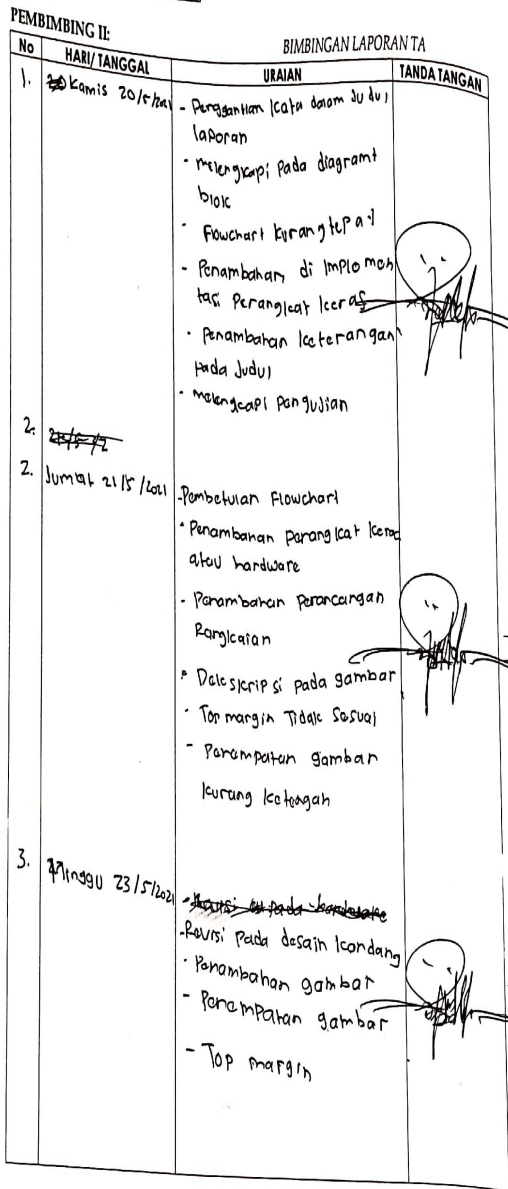 PEMBIMBING II:
BIMBINGAN LAPORAN TA
No HARI/TANGGAL URAIAN TANDA TANGAN
1. Kamis 20/5/2021 - Penggantian kata dalam Judul
laporan
- melengkapi pada diagramt
blok
- Flowchart kurang tepat
- Penambahan di Implemen
tasi Perangkat keras
- Penambahan keterangan
pada Judul
- melengkapi pengujian
2.
2. Jumat 21/5/2021 - Pembetulan Flowchart
- Penambahan perangkat keras
atau hardware
- Penambahan Perancangan
Rangkaian
- Dekskripsi pada gambar
- Top margin Tidak Sesuai
- Penempatan gambar
kurang ketengah
3. Minggu 23/5/2021
- Revisi pada desain kandang
- Penambahan gambar
- Penempatan gambar
- Top margin